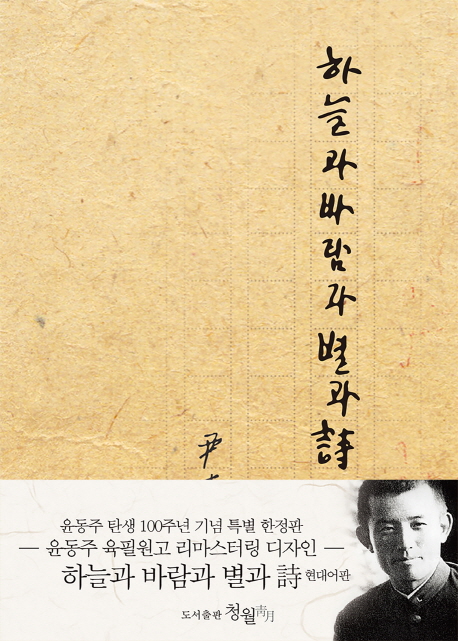 하늘과 바람과 별과 詩
尹
윤동주 탄생 100주년 기념 특별 한정판
— 윤동주 육필원고 리마스터링 디자인 —
하늘과 바람과 별과 詩 현대어판
도서출판 청월靑月